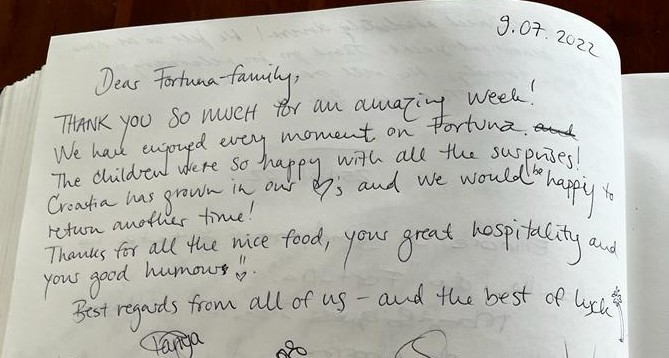 9.07.2022
Dear Fortuna-family,
THANK YOU SO MUCH for an amazing week!
We have enjoyed every moment on Fortuna. and
The children were so happy with all the surprises!
Croatia has grown in our ♡'s and we would be happy to
return another time!
Thanks for all the nice food, your great hospitality and
your good humour!!
Best regards from all of us – and the best of luck
Tanja